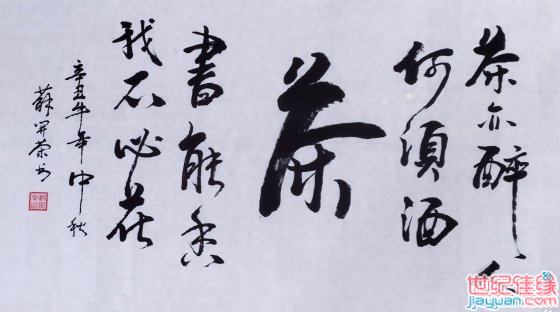 茶亦醉人
何須酒
茶
書能香
我不必花
辛丑牛年中秋
薛開榮書
世纪佳缘
jiayuan.com